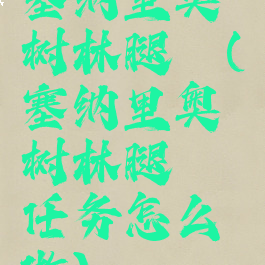 塞纳里奥
树林腿（
塞纳里奥
树林腿
任务怎么
做）